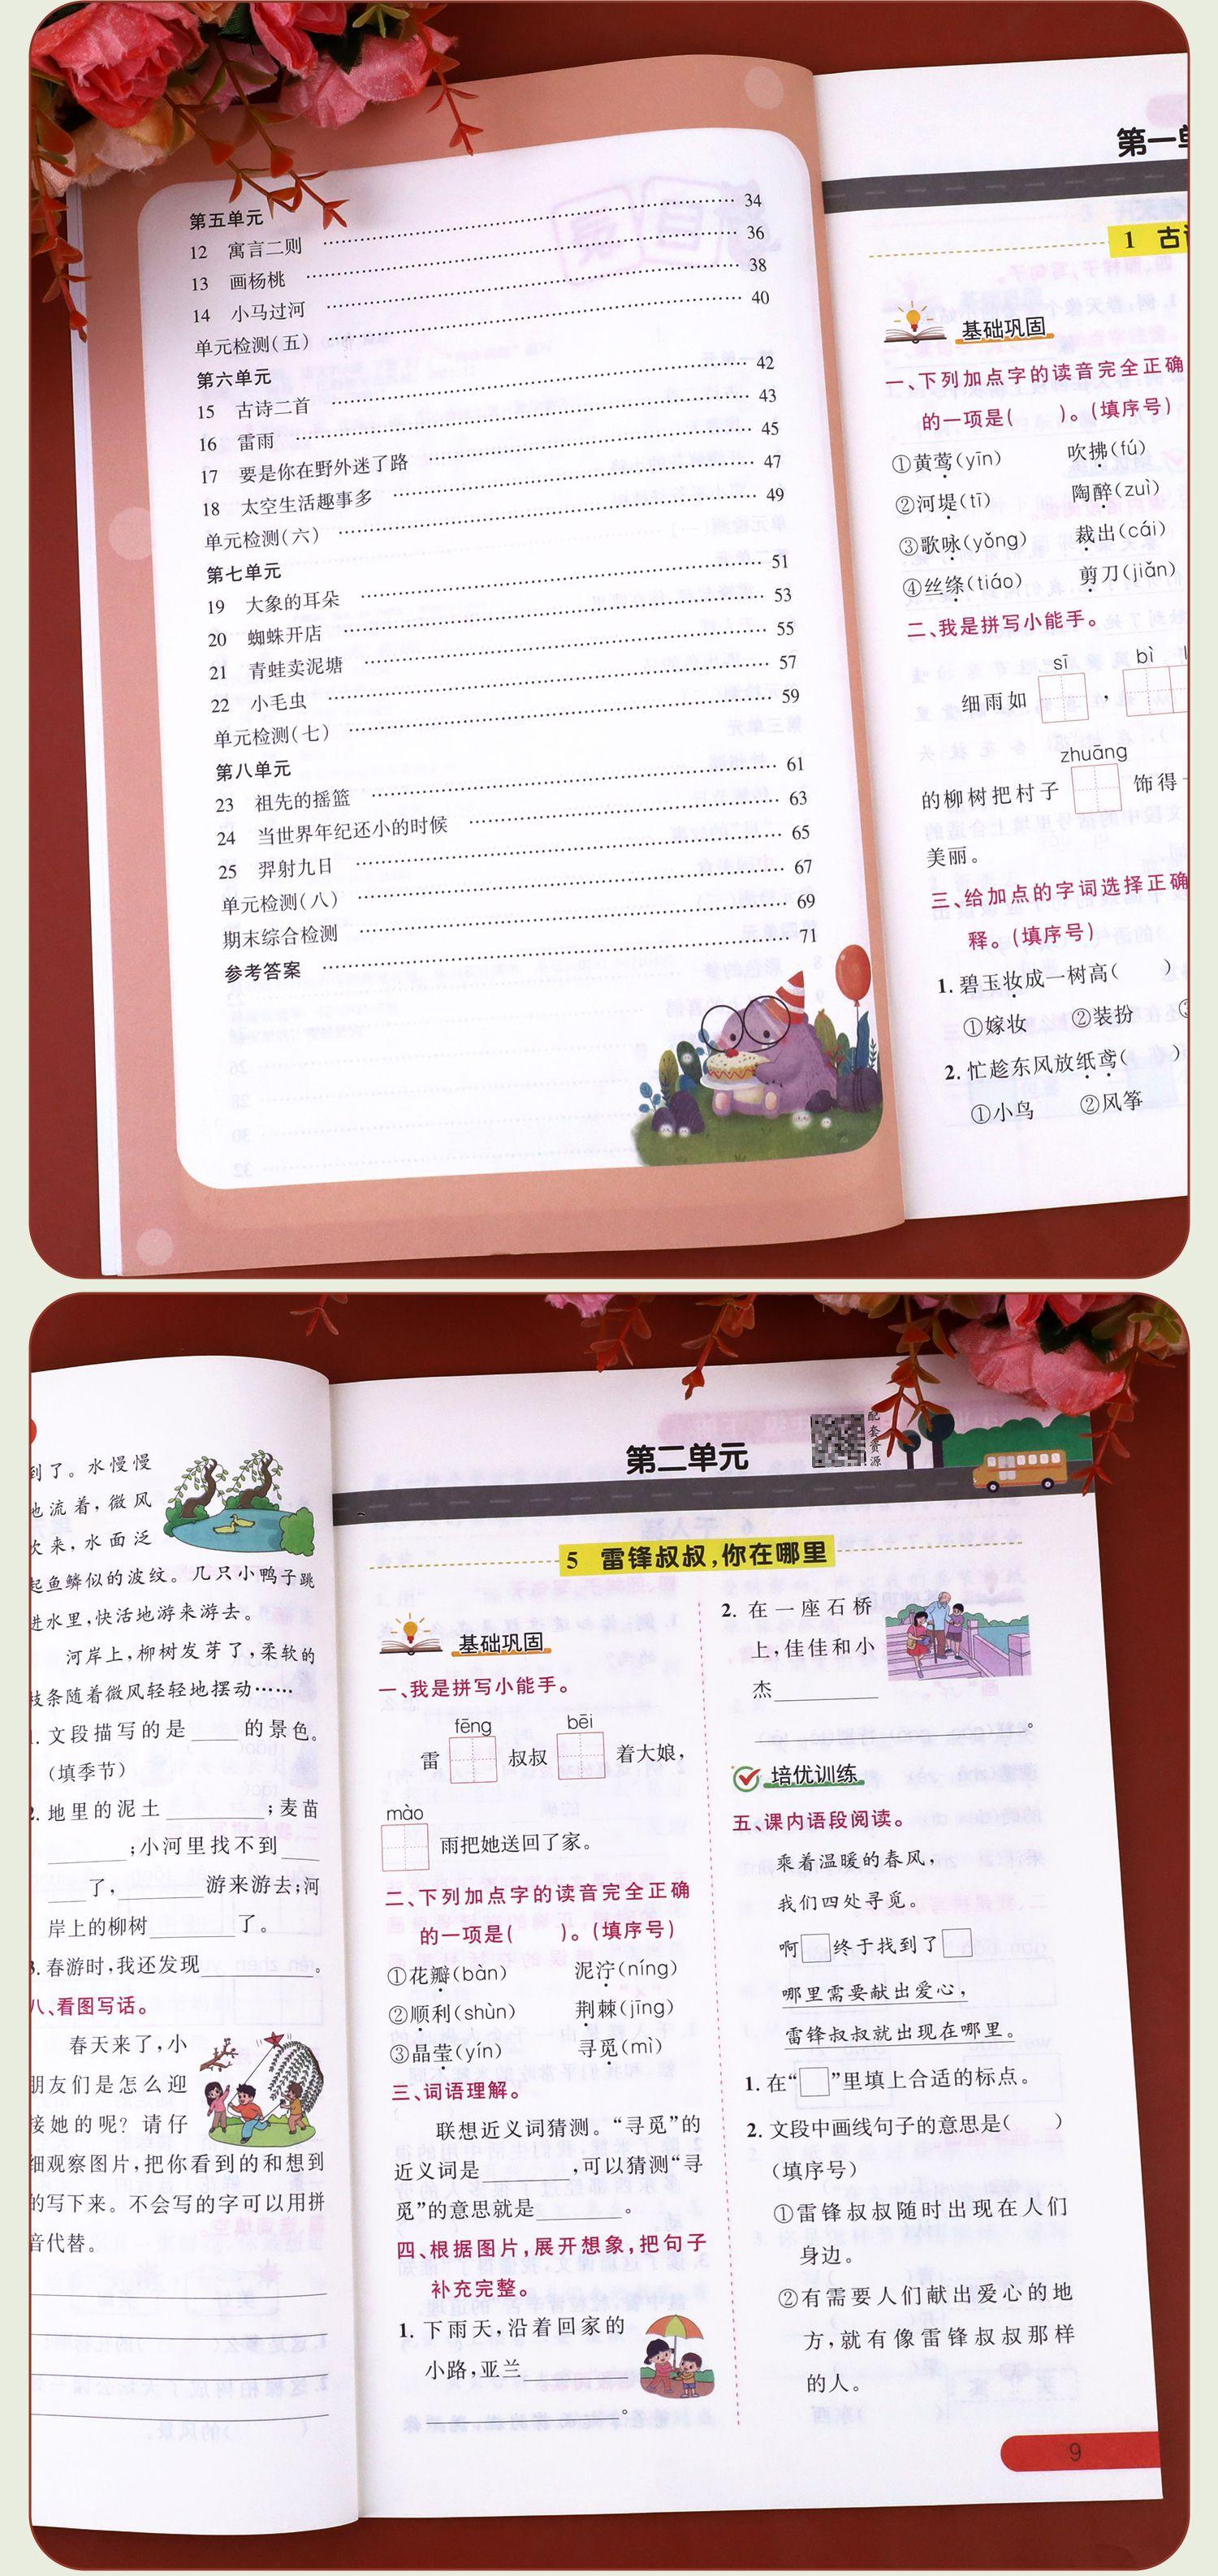 第五单元
12 寓言二则 34
13 画杨桃 36
14 小马过河 38
单元检测(五) 40
第六单元
15 古诗二首 42
16 雷雨 43
17 要是你在野外迷了路 45
18 太空生活趣事多 47
单元检测(六) 49
第七单元
19 大象的耳朵 51
20 蜘蛛开店 53
21 青蛙卖泥塘 55
22 小毛虫 57
单元检测(七) 59
第八单元
23 祖先的摇篮 61
24 当世界年纪还小的时候 63
25 羿射九日 65
单元检测(八) 67
期末综合检测 69
参考答案 71
第一单
1 古
基础巩固
一、下列加点字的读音完全正确
的一项是( )。(填序号)
①黄莺(yīn) 吹拂(fú)
②河堤(tī) 陶醉(zuì)
③歌咏(yǒng) 裁出(cái)
④丝绦(tiáo) 剪刀(jiǎn)
二、我是拼写小能手。
sī bì
细雨如 ,
zhuāng
的柳树把村子 饰得
美丽。
三、给加点的字词选择正确
释。(填序号)
1. 碧玉妆成一树高( )
①嫁妆 ②装扮
2. 忙趁东风放纸鸢( )
①小鸟 ②风筝
到了。水慢慢
地流着,微风
吹来,水面泛
起鱼鳞似的波纹。几只小鸭子跳
进水里,快活地游来游去。
河岸上,柳树发芽了,柔软的
枝条随着微风轻轻地摆动……
1. 文段描写的是____的景色。
(填季节)
2. 地里的泥土________;麦苗
________;小河里找不到____
____了,________游来游去;河
岸上的柳树________了。
3. 春游时,我还发现__________。
八、看图写话。
春天来了,小
朋友们是怎么迎
接她的呢?请仔
细观察图片,把你看到的和想到
的写下来。不会写的字可以用拼
音代替。
第二单元
配套资源
5 雷锋叔叔,你在哪里
基础巩固
一、我是拼写小能手。
fēng bēi
雷 叔叔 着大娘,
mào
雨把她送回了家。
二、下列加点字的读音完全正确
的一项是( )。(填序号)
①花瓣(bàn) 泥泞(níng)
②顺利(shùn) 荆棘(jīng)
③晶莹(yín) 寻觅(mì)
三、词语理解。
联想近义词猜测。“寻觅”的
近义词是________,可以猜测“寻
觅”的意思就是________。
四、根据图片,展开想象,把句子
补充完整。
1. 下雨天,沿着回家的
小路,亚兰__________
____________________。
2. 在一座石桥
上,佳佳和小
杰__________
____________________。
培优训练
五、课内语段阅读。
乘着温暖的春风,
我们四处寻觅。
啊□终于找到了□
哪里需要献出爱心,
雷锋叔叔就出现在哪里。
1. 在“□”里填上合适的标点。
2. 文段中画线句子的意思是( )
(填序号)
①雷锋叔叔随时出现在人们
身边。
②有需要人们献出爱心的地
方,就有像雷锋叔叔那样
的人。
9